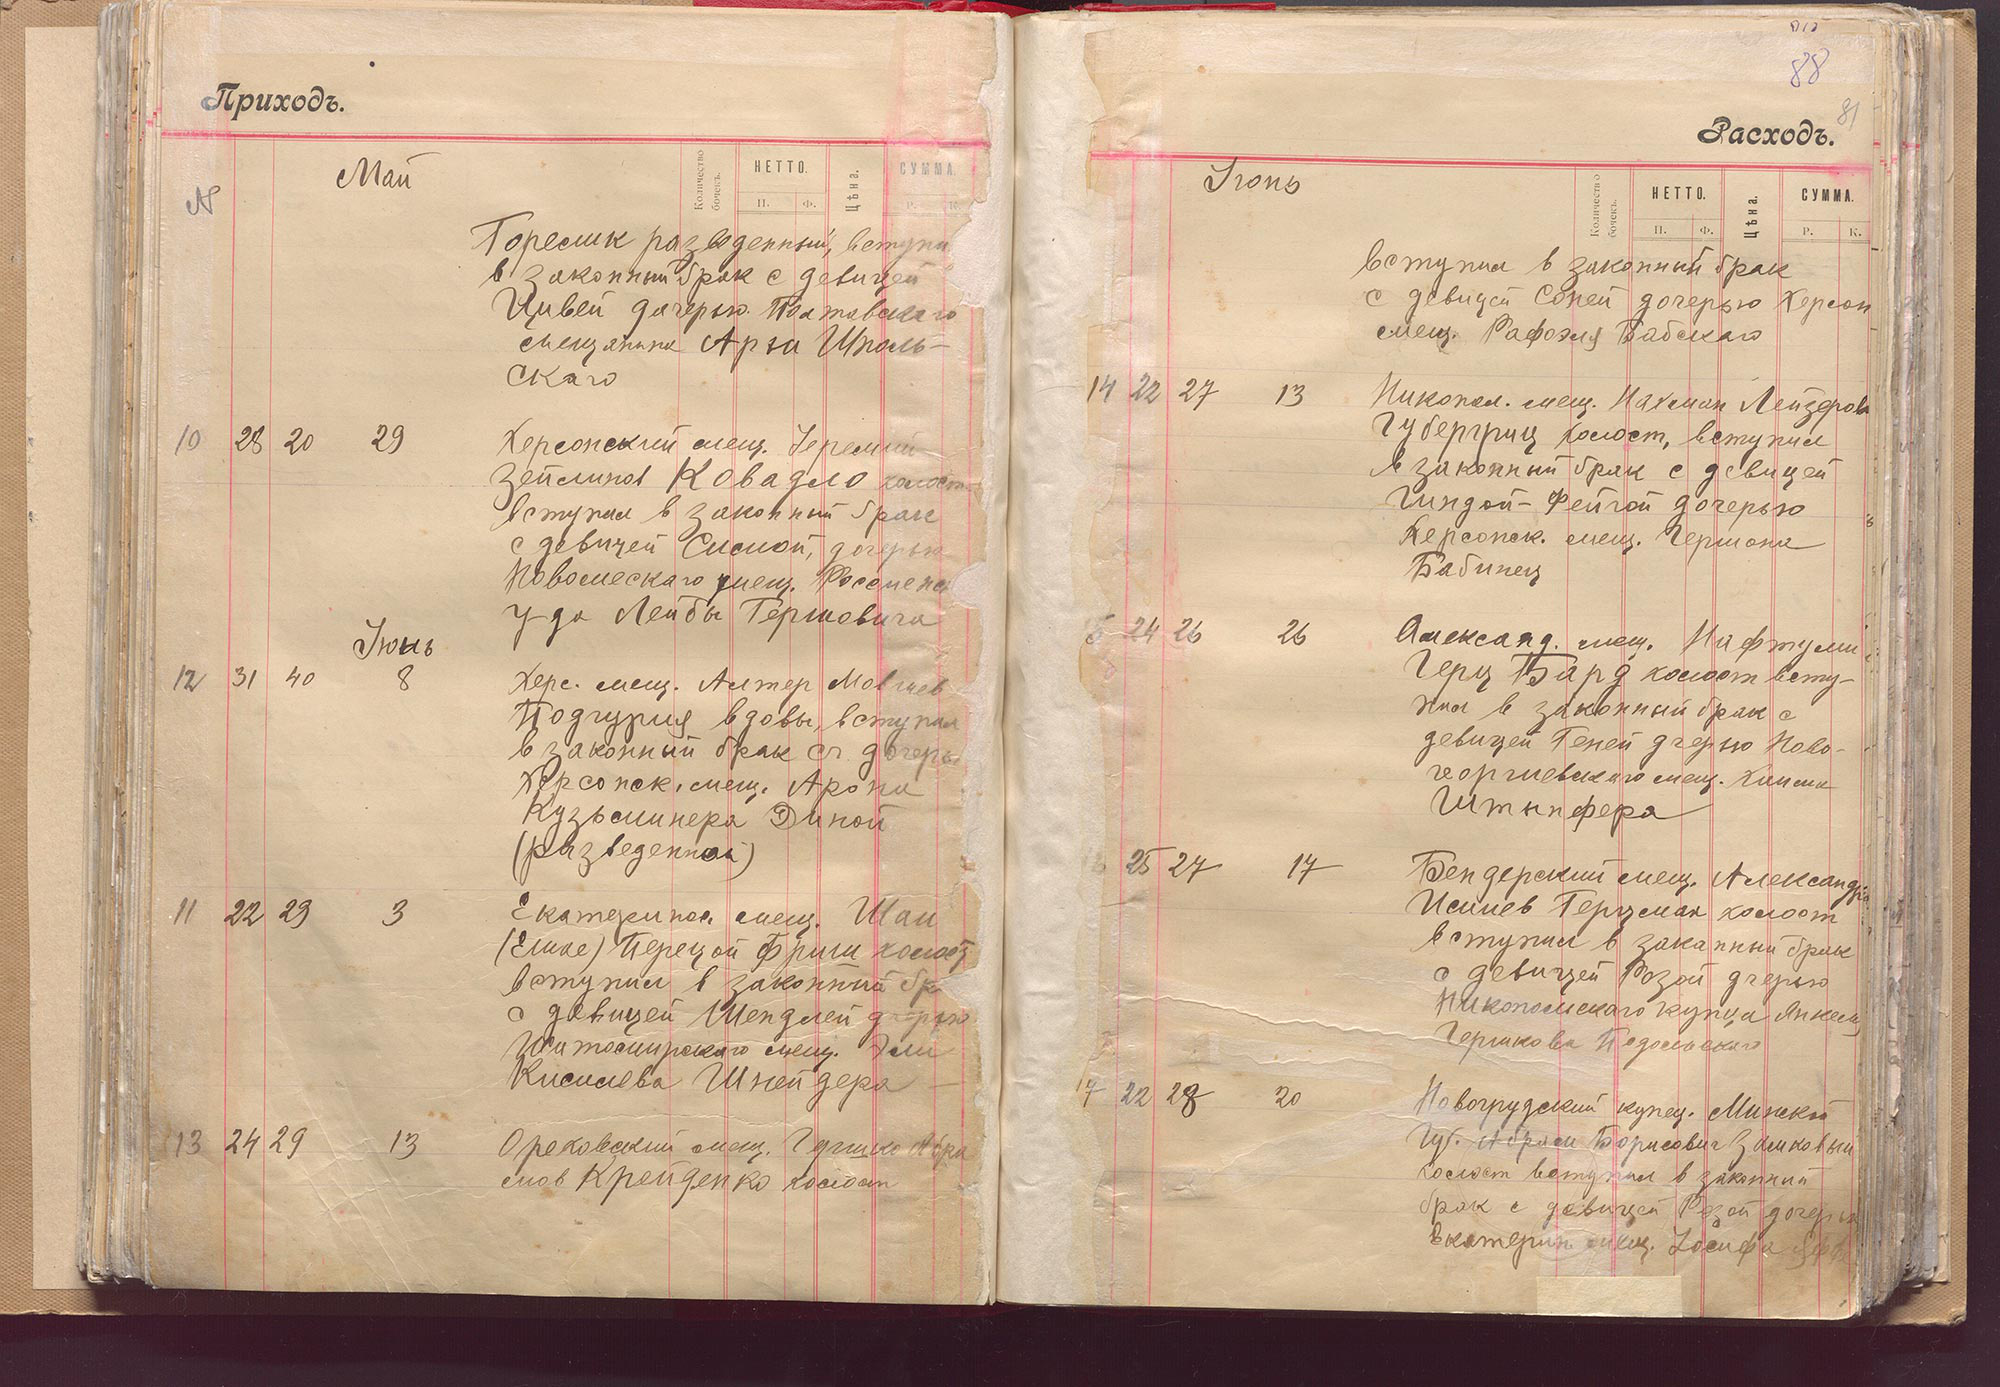 Приходъ.
N
Май
Количество бочекъ.
НЕТТО.
П. Ф.
Цѣна.
СУММА.
Р. К.
Горелик разведенный, вступи
в законный брак с девицей
Цивей дочерью Полтавскаго
мещанина Арии Шполь-
скаго
10 28 20 29 Херсонский мещ. Іеремий
Зейликов Ковадло холост
вступил в законный брак
с девицей Симой, дочерью
мещ.
Лейбы Гершовича
Іюнь
12 31 40 8 Херс. мещ. Алтер Мовшев
Подгурия вдовы, вступил
в законный брак с дочерью
Херсонск. мещ. Арона
Кузьминера Диной
(разведенной)
11 22 29 3 Екатеринос. мещ. Шай
Перецов Фриш холост
вступил в законный бр
с девицей Шендлей дочерью
Житомирскаго мещ. Эли
Кисилева Шнейдера
13 24 29 13 Ореховский мещ. Абра
мов Крейденко холост
88
81
Расходъ.
Іюнь
Количество бочекъ.
НЕТТО.
П. Ф.
Цѣна.
СУММА.
Р. К.
вступил в законный брак
с девицей Соней дочерью Херсон
мещ. Рафаэля Бабскаго
14 22 27 13 Никопол. мещ. Нахман Лейзеров
Губергриц холост, вступил
в законный брак с девицей
Гиндой-Фейгой дочерью
Херсонск. мещ. Гершона
Бабинец
5 24 26 26 Александ. мещ. Нафтули
Герц Бард холост всту-
пил в законный брак с
девицей Геней дчерью Ново-
георгиевскаго мещ. Хаима
Штыпфера
25 27 17 Бендерский мещ. Александр
Исиев Герцман холост
вступил в законный брак
с девицей Розой дчерью
Никопольскаго купца Янкеля
Гершкова Подольскаго
7 22 28 20 Новогрудский купец. Минской
Губ. Абрам Борисович Замковый
холост вступил в законный
брак с девицей Розой дочерью
Екатерин мещ. Іосифа